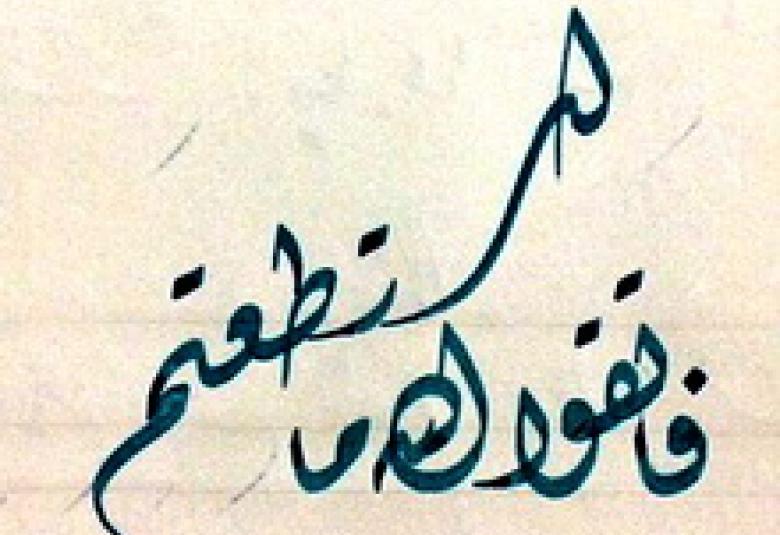 فاتقوا الله ما
استطعتم